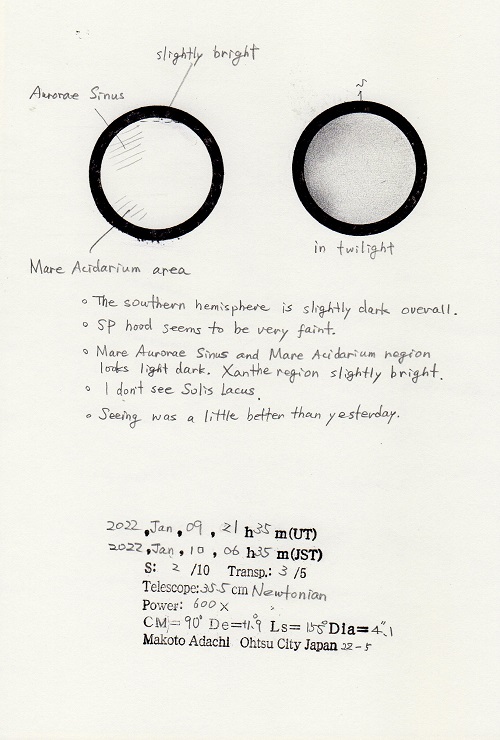 slightly bright
Aurorae Sinus
in twilight
Mare Acidarium area
o The southern hemisphere is slightly dark overall.
o SP hood seems to be very faint.
o Mare Aurorae Sinus and Mare Acidarium region
looks light dark. Xanthe region slightly bright.
o I don't see Solis Lacus.
o Seeing was a little better than yesterday.
2022, Jan, 09, 21 h 35 m (UT)
2022, Jan, 10, 06 h 35 m (JST)
S: 2 /10 Transp.: 3 /5
Telescope: 35.5 cm Newtonian
Power: 600 x
CM= 90° De=+1.9° Ls= 155° Dia= 4".1
Makoto Adachi Ohtsu City Japan 22-5